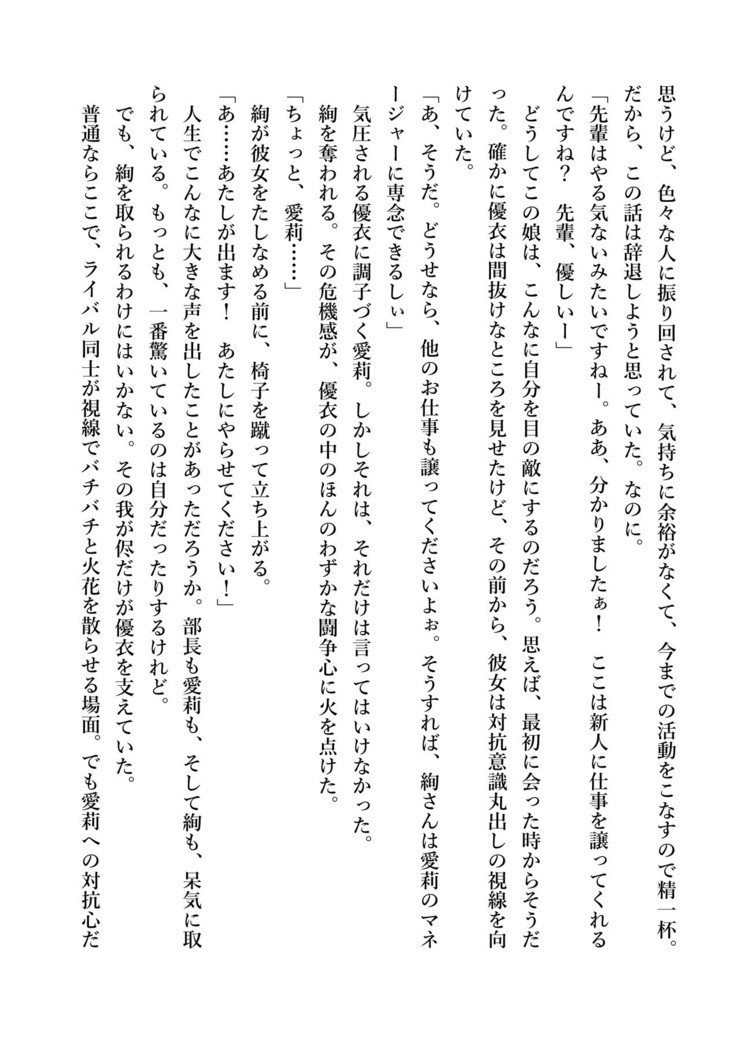 思うけど、色々な人に振り回されて、気持ちに余裕がなくて、今までの活動をこなすので精一杯。
だから、この話は辞退しようと思っていた。なのに。
「先輩はやる気ないみたいですねー。ああ、分かりましたぁ！　ここは新人に仕事を譲ってくれる
んですね？　先輩、優しいー」
どうしてこの娘は、こんなに自分を目の敵にするのだろう。思えば、最初に会った時からそうだ
った。確かに優衣は間抜けなところを見せたけど、その前から、彼女は対抗意識丸出しの視線を向
けていた。
「あ、そうだ。どうせなら、他のお仕事も譲ってくださいよぉ。そうすれば、絢さんは愛莉のマネ
ージャーに専念できるしぃ」
気圧される優衣に調子づく愛莉。しかしそれは、それだけは言ってはいけなかった。
絢を奪われる。その危機感が、優衣の中のほんのわずかな闘争心に火を点けた。
「ちょっと、愛莉……」
絢が彼女をたしなめる前に、椅子を蹴って立ち上がる。
「あ……あたしが出ます！　あたしにやらせてください！」
人生でこんなに大きな声を出したことがあっただろうか。部長も愛莉も、そして絢も、呆気に取
られている。もっとも、一番驚いているのは自分だったりするけれど。
でも、絢を取られるわけにはいかない。その我が侭だけが優衣を支えていた。
普通ならここで、ライバル同士が視線でバチバチと火花を散らせる場面。でも愛莉への対抗心だ